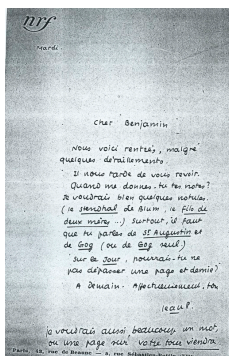 nrf
Mardi.
Cher Benjamin
Nous voici rentrés, malgré
quelques déraillements.
Il nous tarde de vous revoir.
Quand me donnes-tu tes notes?
Je voudrais bien quelques notules.
(le Stendhal de Blum, le Fils de
deux mères...) Surtout, il faut
que tu parles de St Augustin et
de Gog (ou de Gog seul)
Sur le Jour, pourrais-tu ne
pas dépasser une page et demie?
A demain. Affectueusement, ton
Jean P.
je voudrais aussi beaucoup un mot,
ou une page sur votre
Paris, 43, rue de Beaune — 5, rue Sébastien-Bottin